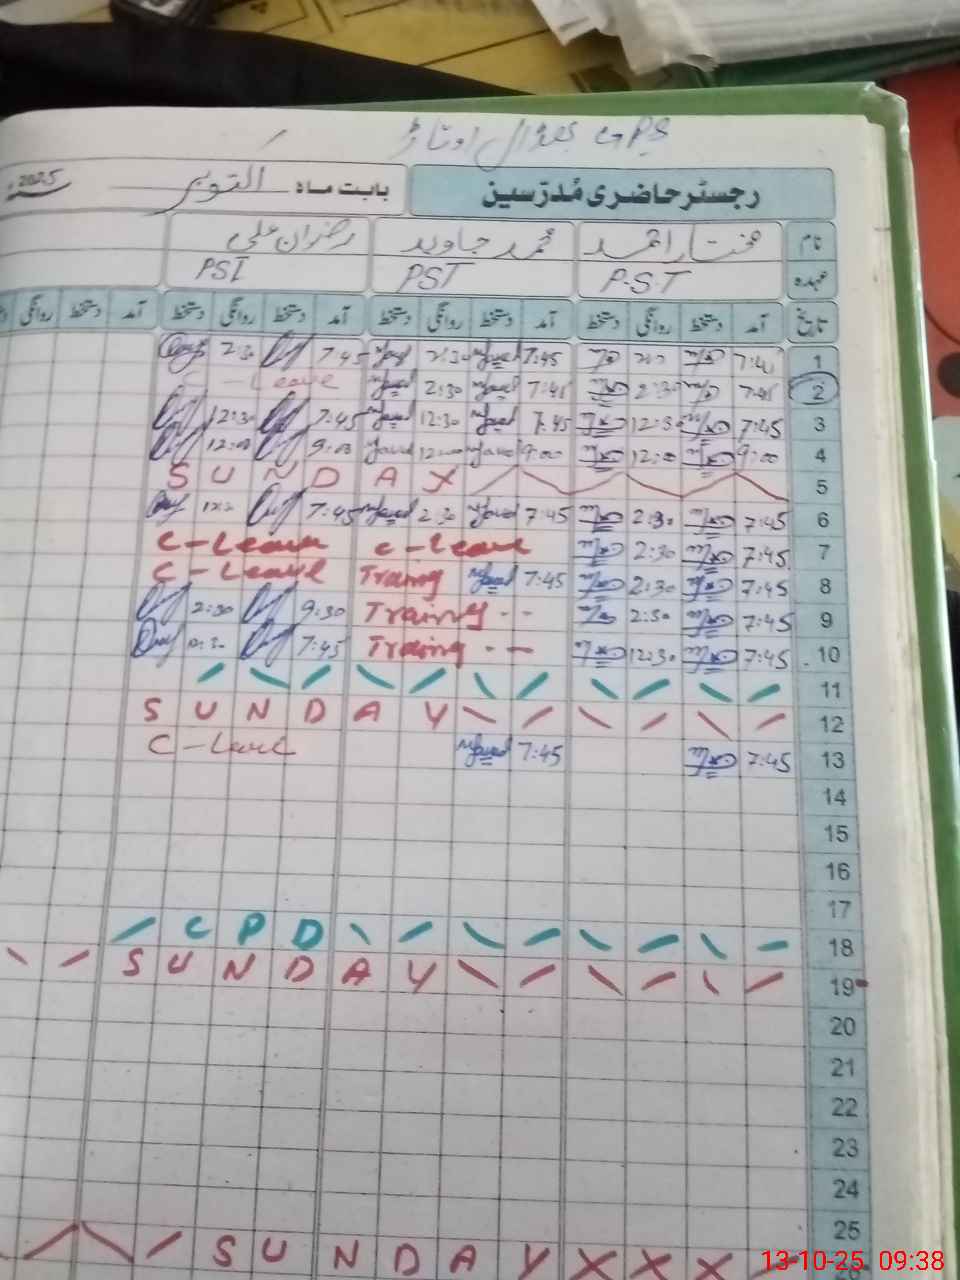 GPS
رجسٹر حاضری مُدرّسین بابت ماہ اکتوبر 2025ء
نام مختار احمد محمد جاوید رضوان علی
عہدہ P.S.T PST PST
تاریخ آمد دستخط روانگی دستخط آمد دستخط روانگی دستخط آمد دستخط روانگی دستخط آمد دستخط روانگی
1 7:45 Javed 2:30 Javed 7:45 2:30
2 7:45 2:30 7:45 Javed 2:30 Javed Leave
3 7:45 12:30 7:45 Javed 12:30 Javed 7:45 12:30
4 9:00 12:00 9:00 Javed 12:00 Javed 9:00 12:00
5 SUNDAY
6 7:45 2:30 7:45 Javed 2:30 Javed 7:45
7 7:45 2:30 C-Leave C-Leave
8 7:45 2:30 7:45 Javed Traing C-Leave
9 7:45 2:30 Traing 9:30 2:30
10 7:45 12:30 Traing 7:45
11
12 SUNDAY
13 7:45 7:45 Javed C-Leave
14
15
16
17
18 CPD
19 SUNDAY
20
21
22
23
24
25
SUNDAY
13-10-25 09:38